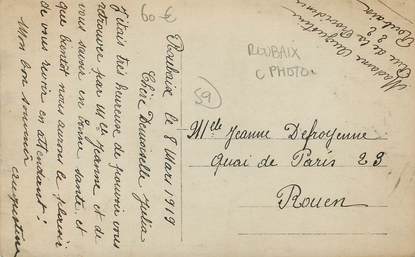 60 €
Roubaix le 8 Mars 1919
Chère Demoiselle Julia
J'étais très heureuse de pouvoir vous
retrouver par Mlle Jeanne et de
vous savoir en bonne santé. et
que bientôt nous aurons le plaisir
de vous revoir en attendant !
Mon bon souvenir
Augustine
Madame Augustine
Rue de la
Roubaix
ROUBAIX
C PHOTO
59
Melle Jeanne Defroyenne
Quai de Paris 23
Rouen